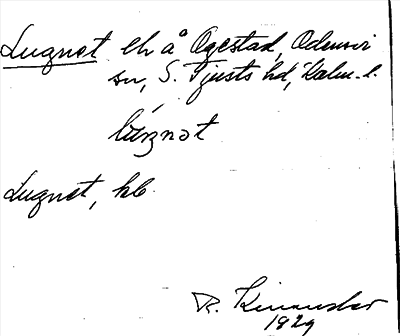 Lugnet lh å Ogestad, Odensvi
sn, S. Tjusts hd, Kalm. l.
lúŋnət
Lugnet, hb.
R. Kinander
1929